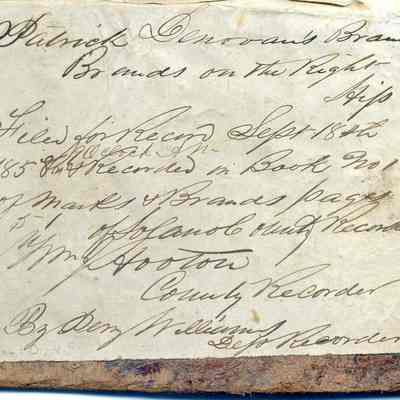 Patrick Denovan's Bran
Brands on the Right
Hip
Filed for Record Sept 18th
1858 at Recorded in Book No 1
of Marks & Brands page
15 of Solano County Record
Wm Hooton
County Recorder
By Benj Williams
Dept Recorder